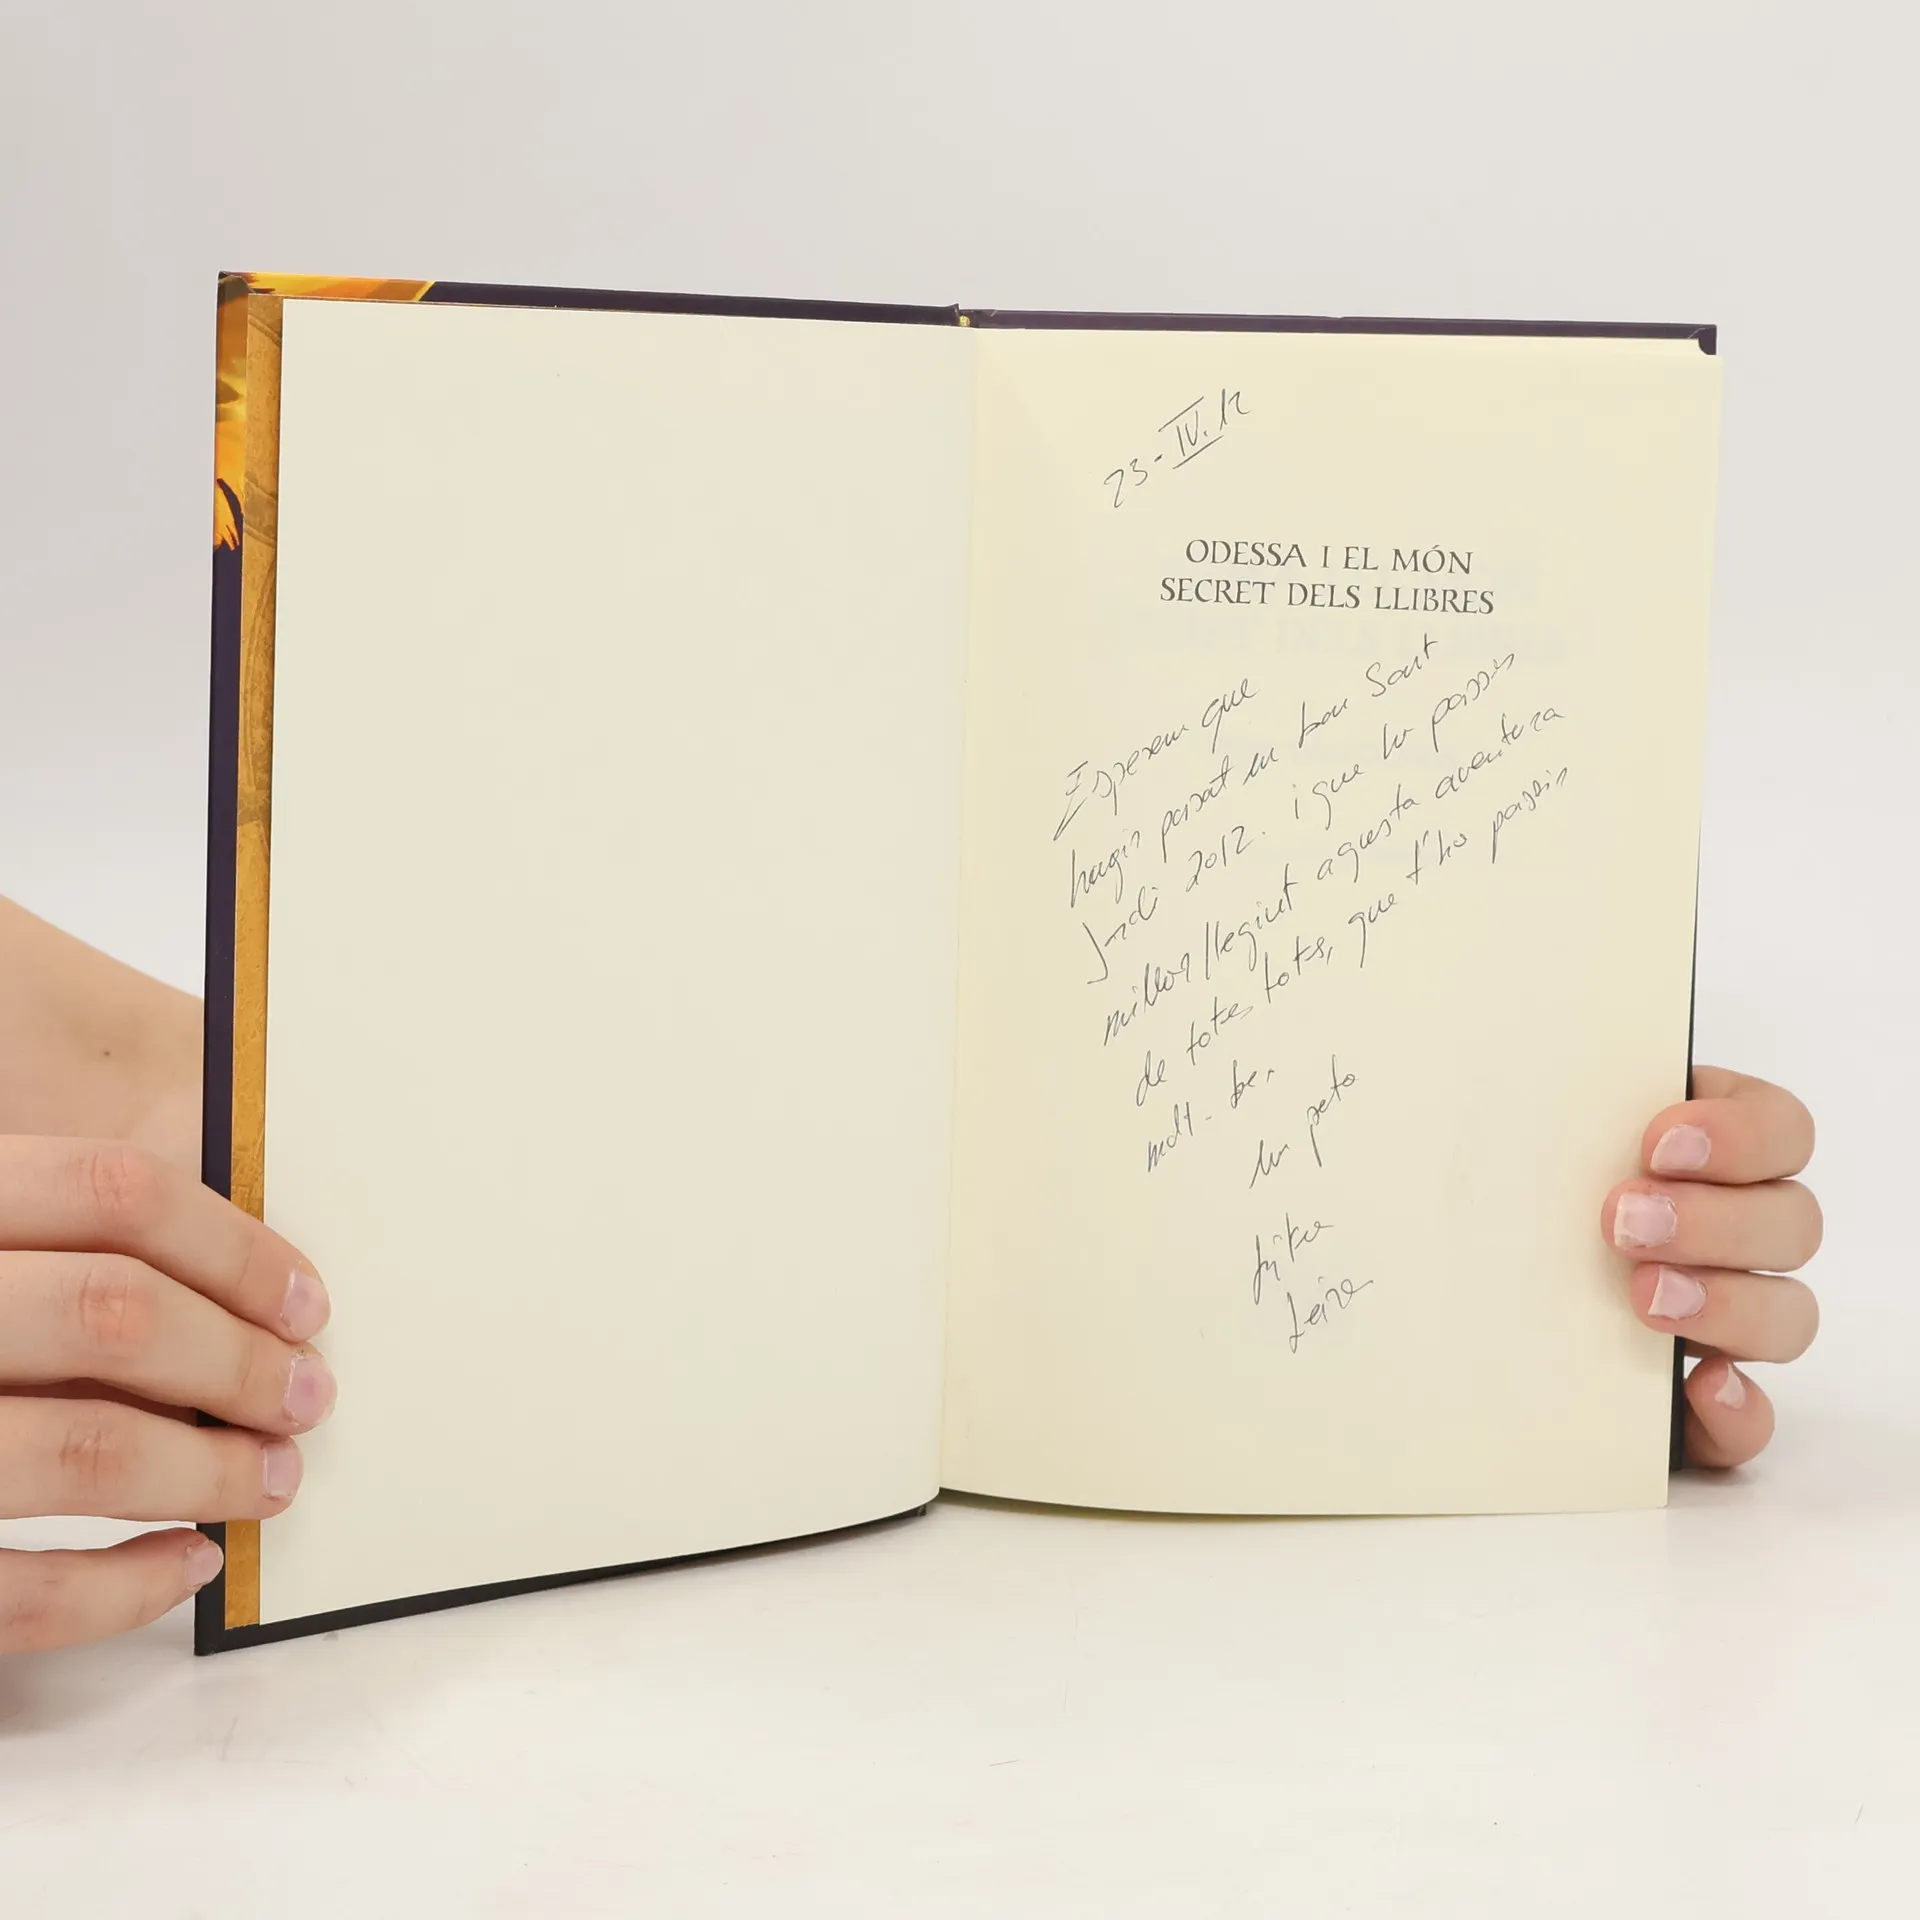 23-IV.12
ODESSA I EL MÓN
SECRET DELS LLIBRES
Esperem que
hagis passat un bon Sant
Jordi 2012. i que ho passes
millor llegint aquesta aventura
de totes totes, que t'ho passis
molt- be.
Un peto
Leire